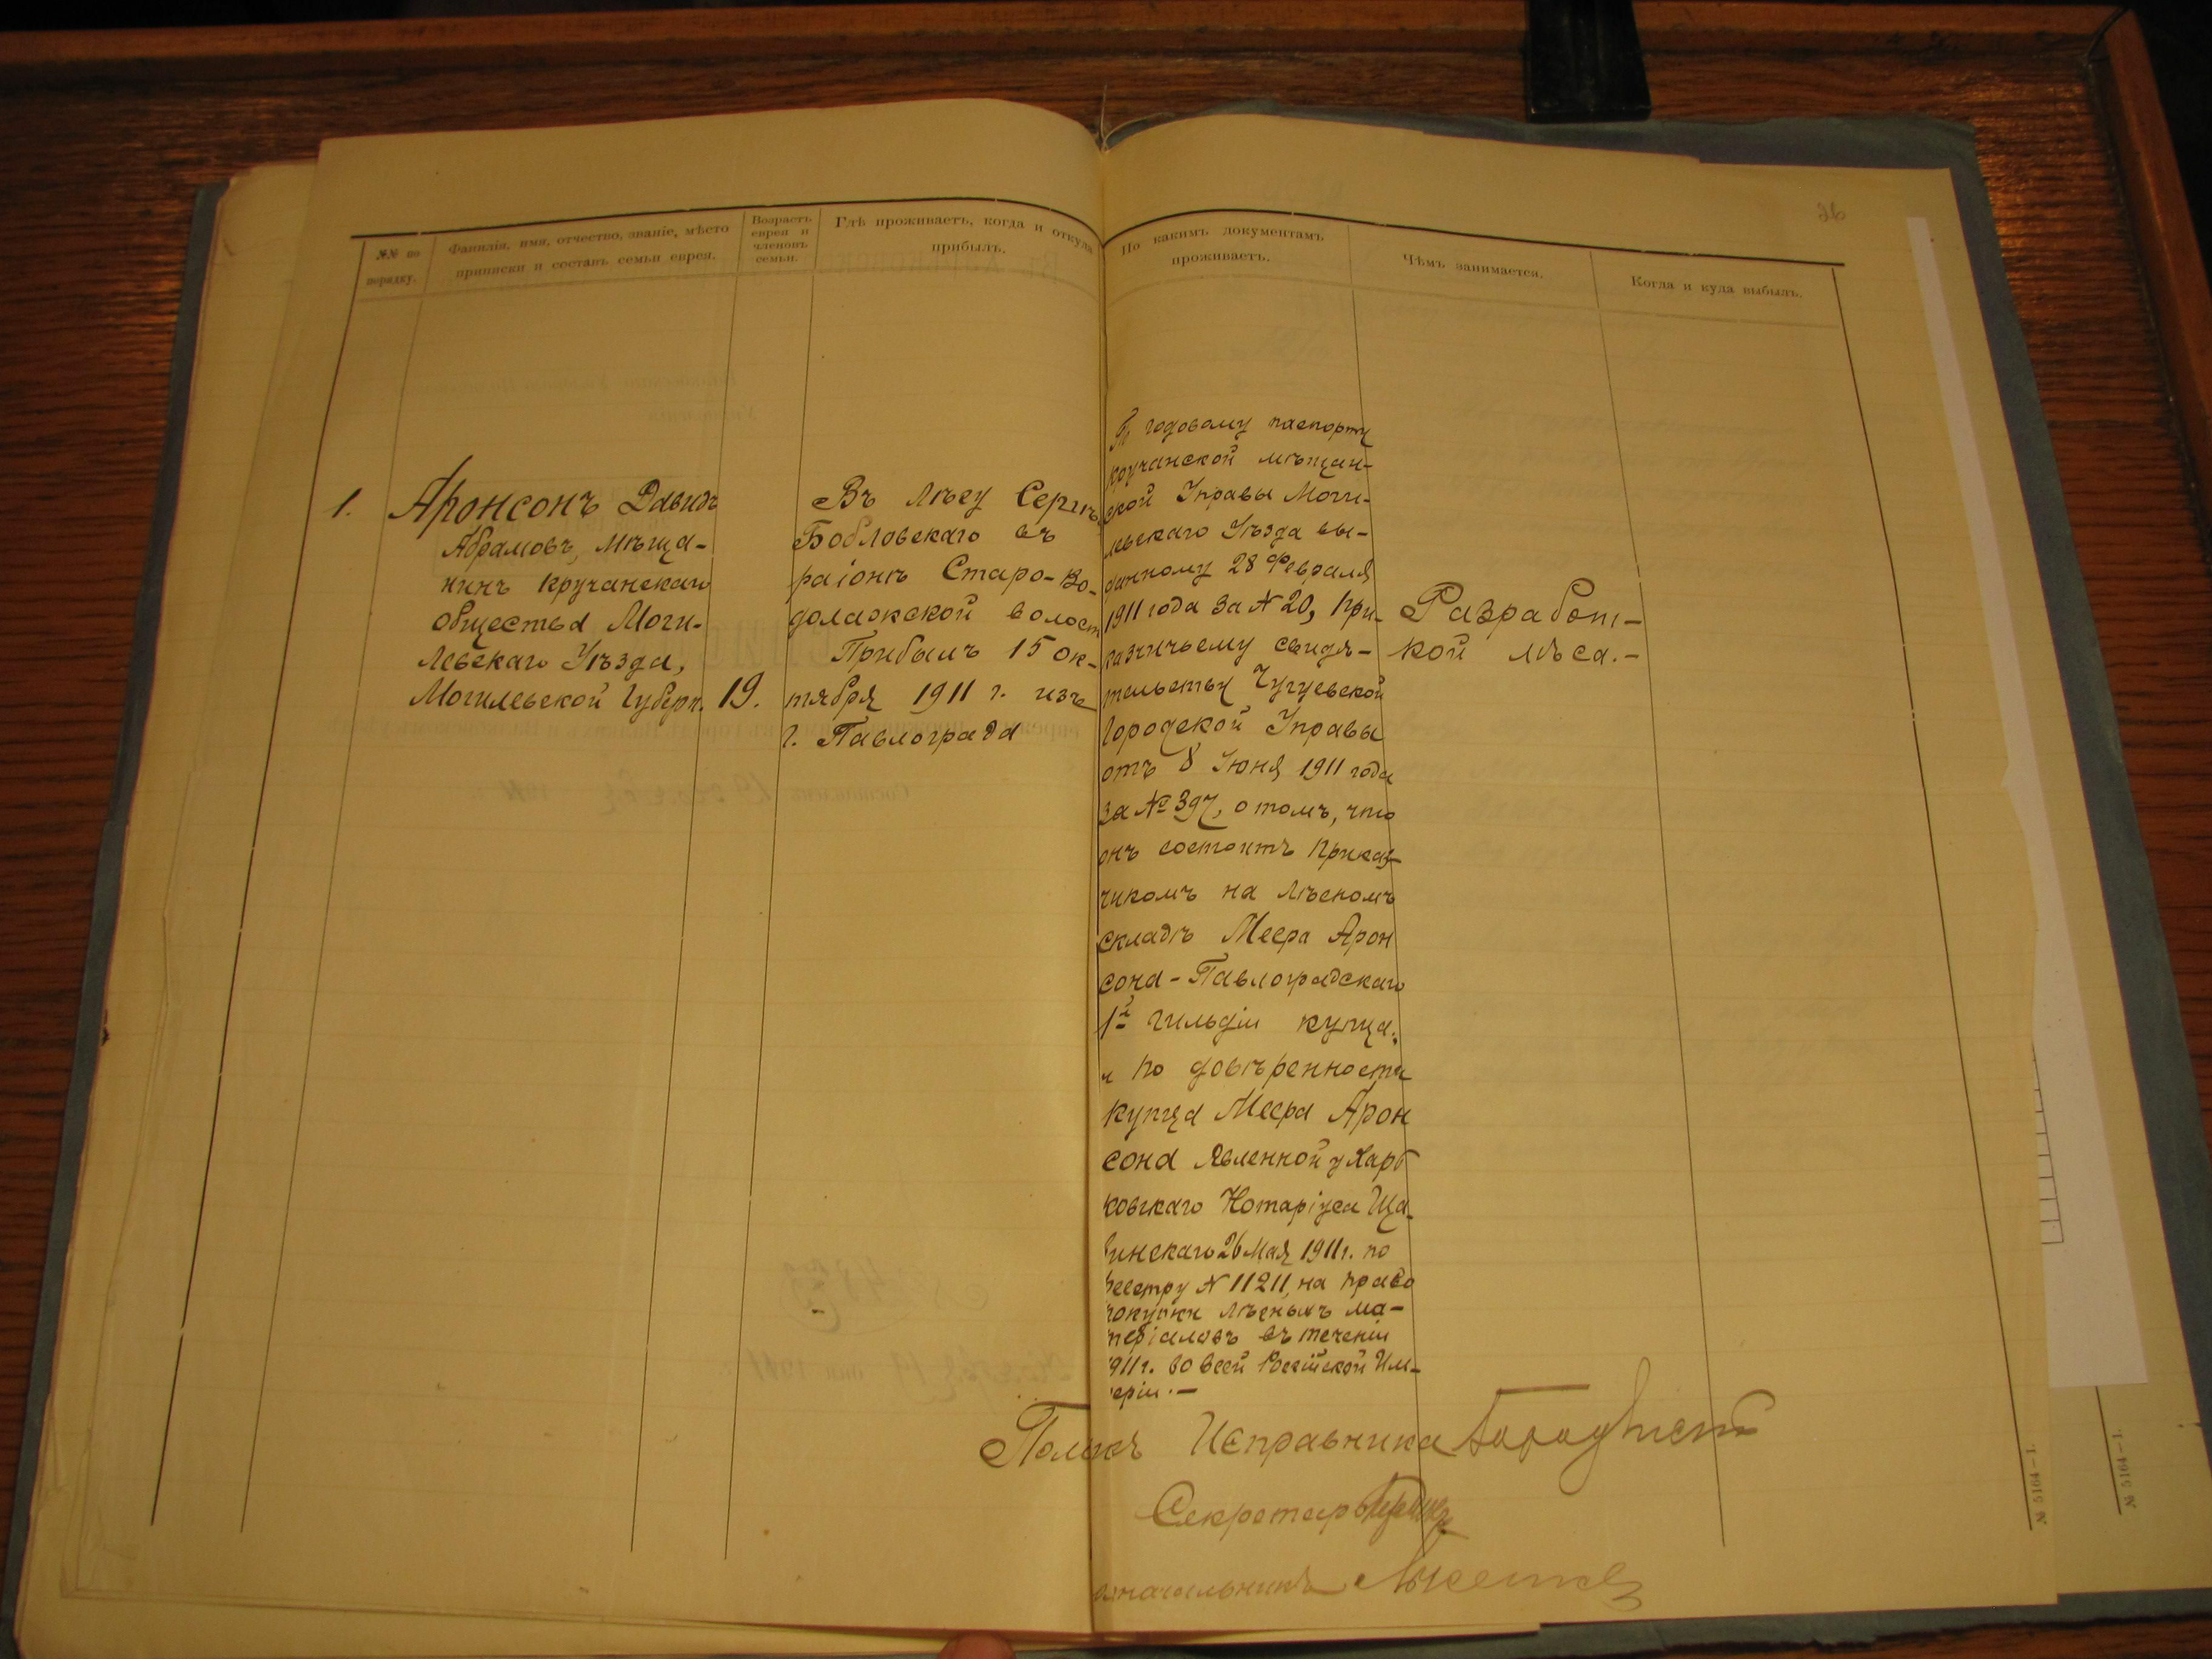 36
№№ по
порядку.
Фамилія, имя, отчество, званіе, мѣсто
приписки и составъ семьи еврея.
Возрастъ
еврея и
членовъ
семьи.
Гдѣ проживаетъ, когда и откуда
прибылъ.
По какимъ документамъ
проживаетъ.
Чѣмъ занимается.
Когда и куда выбылъ.
1.
Аронсонъ Давидъ
Абрамовъ, мѣща-
нинъ Кручанскаго
общества Моги-
левскаго Уѣзда,
Могилевской Губерн.
19.
Въ лѣсу Сергѣя
Бобловскаго въ
раіонѣ Старо-Во-
долажской волост
Прибылъ 15 ок-
тября 1911 г. изъ
г. Павлограда
По годовому паспорту
Кручанской мѣщан-
ской Управы Моги-
левскаго Уѣзда вы-
данному 28 Февраля
1911 года за № 20, при-
казчичьему свидѣ-
тельству Чугуевской
Городской Управы
отъ 8 Іюня 1911 года
за № 397, о томъ, что
онъ состоитъ приказ-
чикомъ на лѣсномъ
складѣ Меера Арон
сона - Павлоградскаго
1й гильдіи купца.
и по довѣренности
купца Меера Арон
сона явленной у Харь
ковскаго Нотаріуса
26 Мая 1911 г. по
реестру № 11211, на право
покупки лѣсныхъ ма-
теріаловъ въ теченіи
1911 г. во всей Россійской Им-
періи.-
Разработ-
кой лѣса.-
Исправника
Секретарь
№ 5164—1.
№ 5164—1.